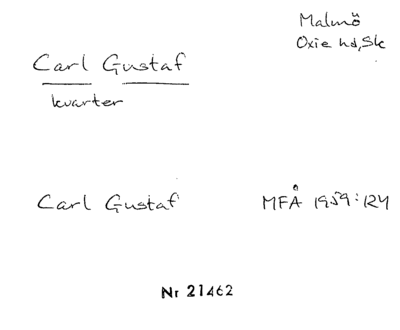 Malmö
Oxie hd, Sk
Carl Gustaf
kvarter
Carl Gustaf
MFÅ 1959:124
Nr 21462